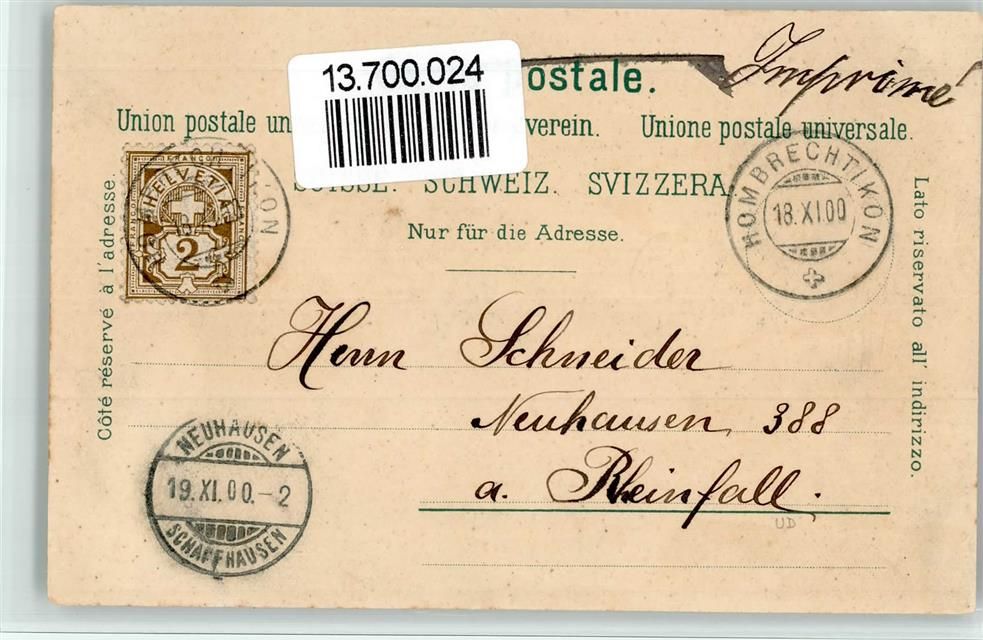 13.700.024
postale.
Imprimé
Union postale un verein. Unione postale universale.
SUISSE. SCHWEIZ. SVIZZERA.
Nur für die Adresse.
Côté réservé à l'adresse.
Lato riservato all' indirizzo.
FRANCO
HELVETIA
2
KON
HOMBRECHTIKON
18.XI.00
Herrn Schneider
Neuhausen 388
a. Rheinfall.
UD
NEUHAUSEN
19.XI.00.-2
SCHAFFHAUSEN